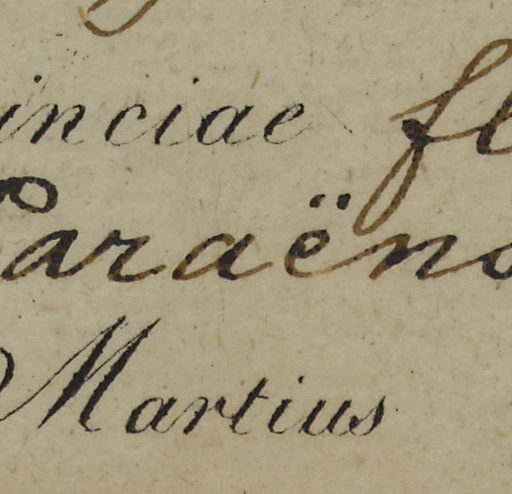 inciae fl
Paraëno
Martius